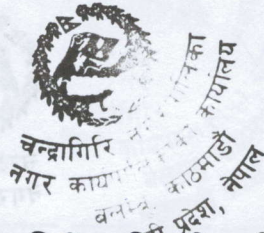 चन्द्रागिरि नगरपालिका
नगर कार्यपालिकाको कार्यालय
बलम्बु, काठमाडौं
प्रदेश, नेपाल